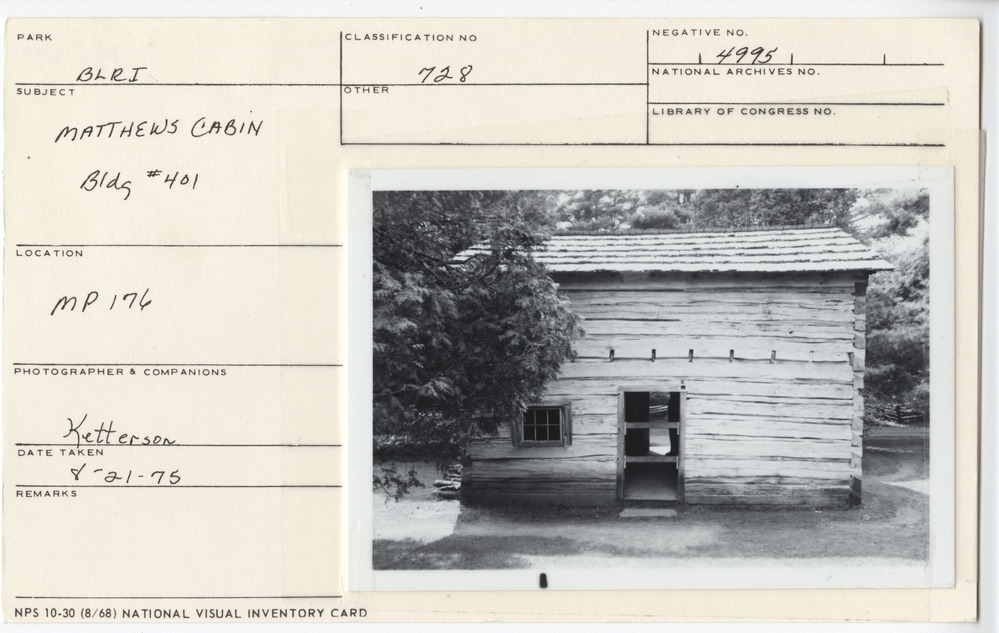 PARK
BLRI
SUBJECT
MATTHEWS CABIN
Bldg #401
LOCATION
MP 176
PHOTOGRAPHER & COMPANIONS
Ketterson
DATE TAKEN
8-21-75
REMARKS
CLASSIFICATION NO
728
OTHER
NEGATIVE NO.
4995
NATIONAL ARCHIVES NO.
LIBRARY OF CONGRESS NO.
NPS 10-30 (8/68) NATIONAL VISUAL INVENTORY CARD